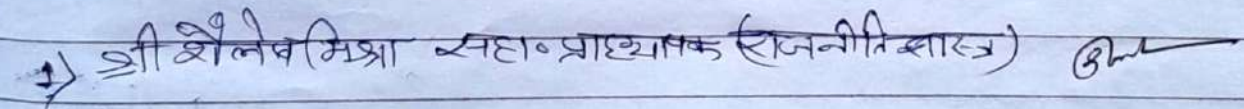 1) श्री शैलेष मिश्रा सहा॰ प्राध्यापक (राजनीति शास्त्र)